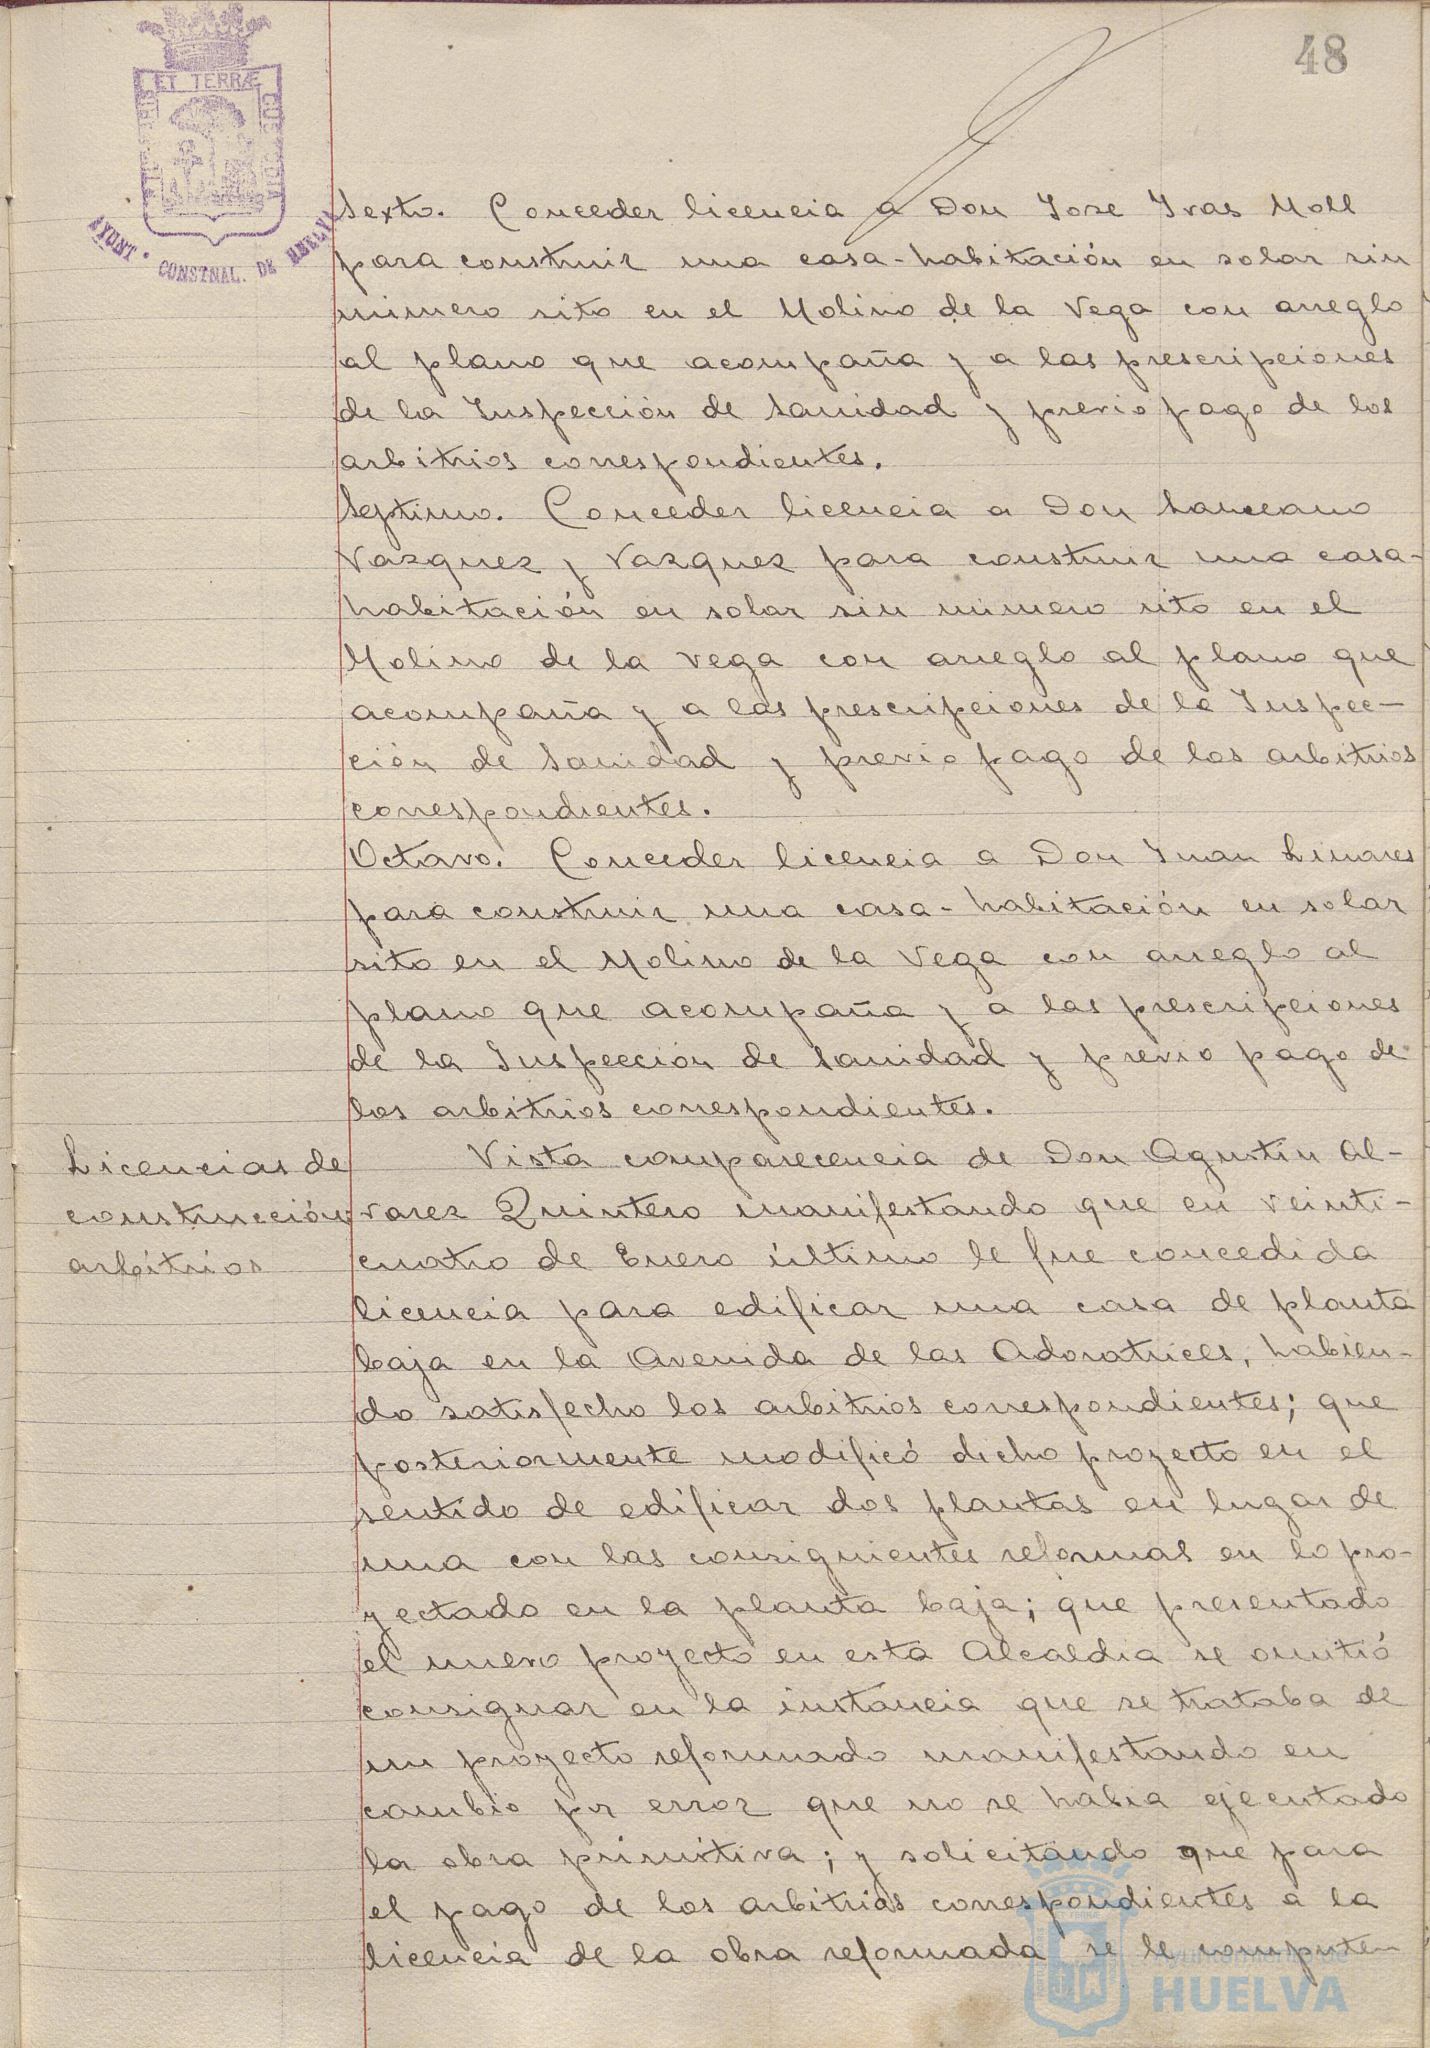 48
ET TERRÆ
AYUNT. CONSTNAL. DE HUELVA
Sexto. Conceder licencia a Don Jose Ivas Moll
para construir una casa-habitación en solar sin
número sito en el Molino de la Vega con arreglo
al plano que acompaña y a las prescripciones
de la Inspección de Sanidad y previo pago de los
arbitrios correspondientes.
Septimo. Conceder licencia a Don
Vazquez y Vazquez para construir una casa-
habitación en solar sin número sito en el
Molino de la Vega con arreglo al plano que
acompaña y a las prescripciones de la Inspec-
ción de Sanidad y previo pago de los arbitrios
correspondientes.
Octavo. Conceder licencia a Don Juan Linares
para construir una casa-habitación en solar
sito en el Molino de la Vega con arreglo al
plano que acompaña y a las prescripciones
de la Inspección de Sanidad y previo pago de
los arbitrios correspondientes.
Licencias de
construcción
arbitrios
Vista comparecencia de Don Agustin Al-
varez Quintero manifestando que en veinti-
cuatro de Enero último le fue concedida
licencia para edificar una casa de planta
baja en la Avenida de las Adoratrices, habien-
do satisfecho los arbitrios correspondientes; que
posteriormente modificó dicho proyecto en el
sentido de edificar dos plantas en lugar de
una con las consiguientes reformas en lo pro-
yectado en la planta baja; que presentado
el nuevo proyecto en esta Alcaldia se omitió
consignar en la instancia que se trataba de
un proyecto reformado manifestando en
cambio por error que no se habia ejecutado
la obra primitiva; y solicitando que para
el pago de los arbitrios correspondientes a la
licencia de la obra reformada se le computen
Ayuntamiento de
HUELVA